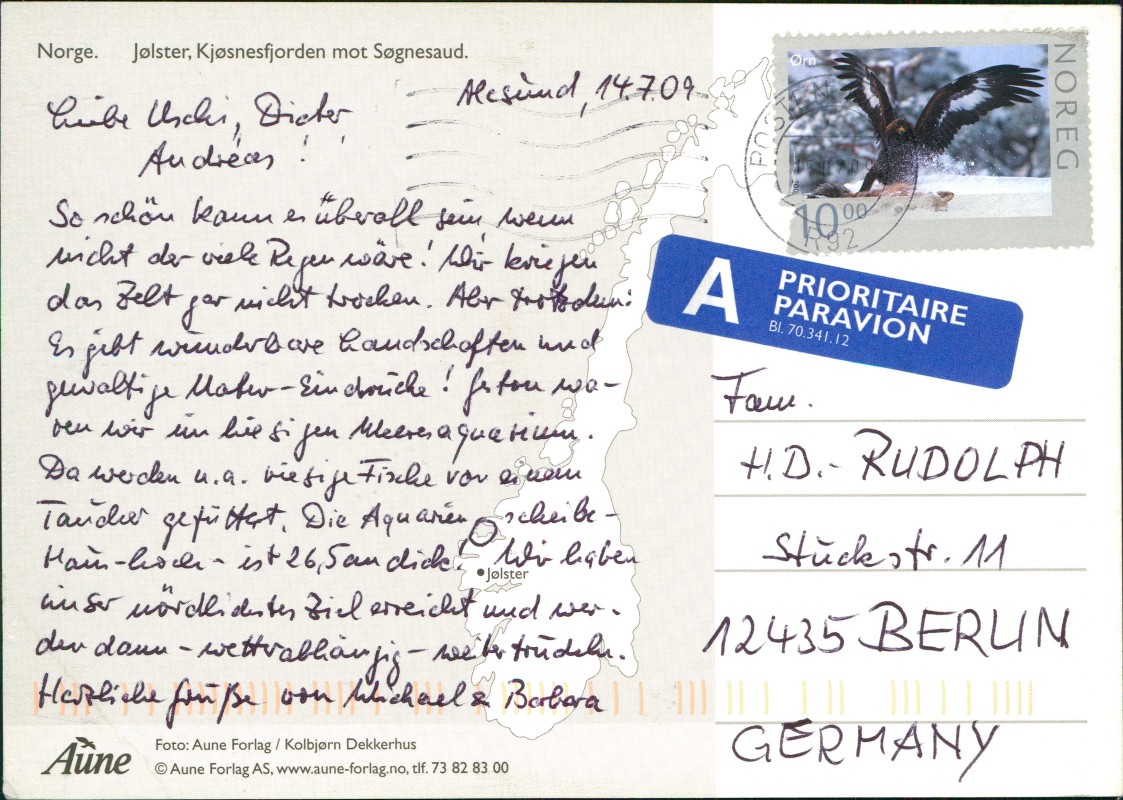 Norge. Jølster, Kjøsnesfjorden mot Søgnesaud.
Alesund, 14.7.09
Liebe Uschi, Dieter,
Andreas!
So schön kann es überall sein, wenn
nicht der viele Regen wäre! Wir kriegen
das Zelt gar nicht trocken. Aber trotzdem:
Es gibt wunderbare Landschaften und
gewaltige Natur-Eindrücke! Gestern wa-
ren wir im hiesigen Meeresaquarium.
Da werden u.a. riesige Fische von einem
Taucher gefüttert. Die Aquarienscheibe -
Haus-hoch - ist 26,5cm dick! Wir haben
unser nördlichstes Ziel erreicht und wer-
den dann - wetterabhängig - weitertrudeln.
Herzliche Grüße von Michael & Barbara
Jølster
Aune
Foto: Aune Forlag / Kolbjørn Dekkerhus
© Aune Forlag AS, www.aune-forlag.no, tlf. 73 82 83 00
Ørn
NOREG
10 00
POSTEN
R92
A PRIORITAIRE
PAR AVION
Bl. 70.341.12
Fam.
H.D.- RUDOLPH
Stuckstr. 11
12435 BERLIN
GERMANY